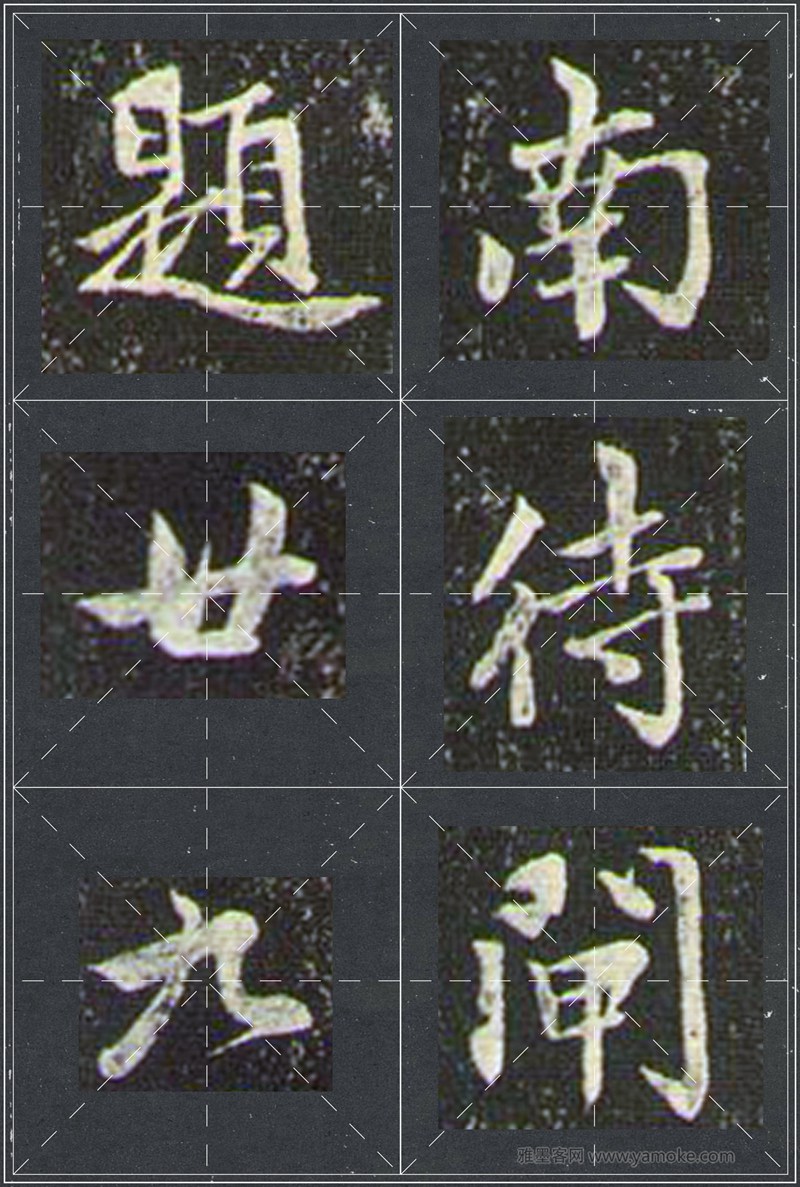 南待閘
題廿九
雅墨客网 www.yamoke.com